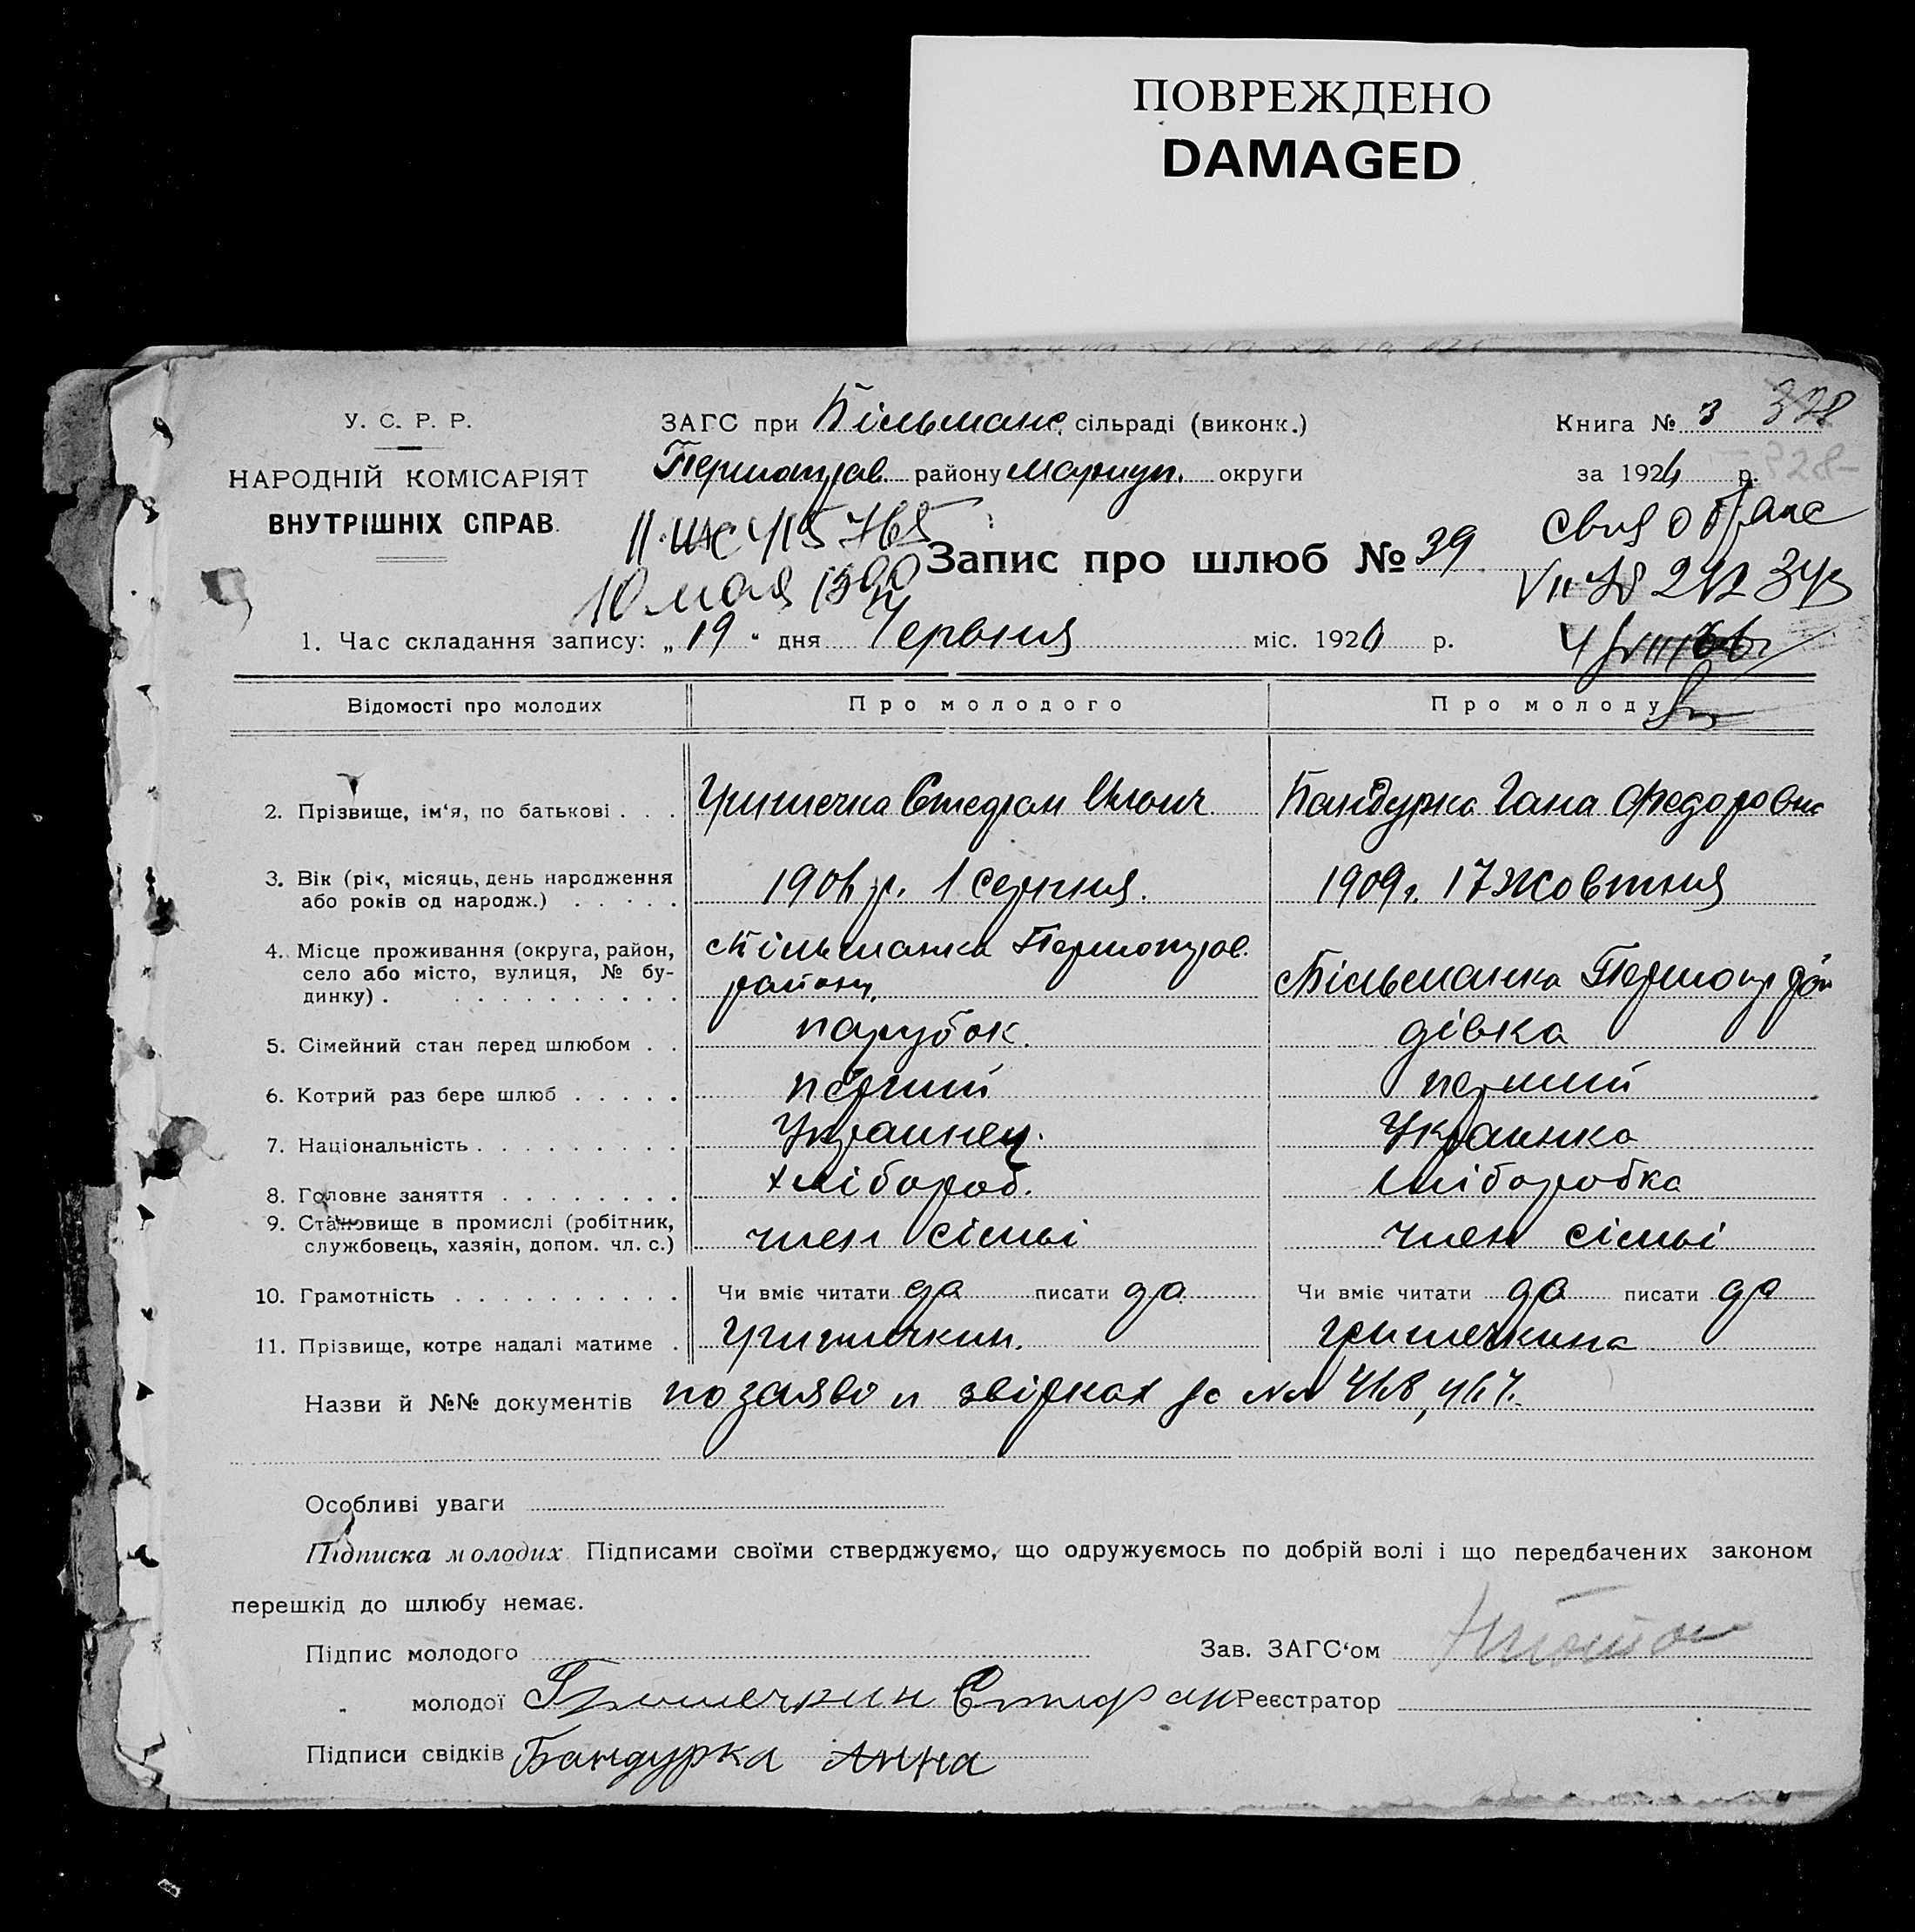 ПОВРЕЖДЕНО
DAMAGED
У. С. Р. Р.
НАРОДНІЙ КОМІСАРІЯТ
ВНУТРІШНІХ СПРАВ.
ЗАГС при Більманс. сільраді (виконк.)
Першотрав. району Маріуп. округи
Книга № 3 328
за 192 р. 328
10 мая
Запис про шлюб № 39
1. Час складання запису: „19“ дня Червня міс. 192 р.
Відомості про молодих
Про молодого
Про молоду
2. Прізвище, ім‘я, по батькові . . .
Гришечка Стефан Ильич
Бандурка Гана Федоровна
3. Вік (рік, місяць, день народження
або років од народж.) . . . . .
1 Серпня.
1909 г. 17 Жовтня
4. Місце проживання (округа, район,
село або місто, вулиця, № бу-
динку) . . . . . . . . . . .
Більманка Першотрав.
району.
Більманка Першотр рай
5. Сімейний стан перед шлюбом . .
парубок.
дівка
6. Котрий раз бере шлюб . . . . .
перший
перший
7. Національність . . . . . . . . .
Украинец.
Украинка
8. Головне заняття . . . . . . . .
хлібороб.
хліборобка
9. Становище в промислі (робітник,
службовець, хазяін, допом. чл. с.)
член сімьі
член сімьі
10. Грамотність . . . . . . . . . .
Чи вміє читати да писати да
Чи вміє читати да писати да
11. Прізвище, котре надалі матиме .
Гришечкин.
Гришечкина
Назви й №№ документів по заяві и звірках
Особливі уваги
Підписка молодих. Підписами своїми стверджуємо, що одружуємось по добрій волі і що передбачених законом
перешкід до шлюбу немає.
Підпис молодого
Зав. ЗАГС‘ом
„ молодої Гришечкин Стефан
Реєстратор
Підписи свідків Бандурка Анна